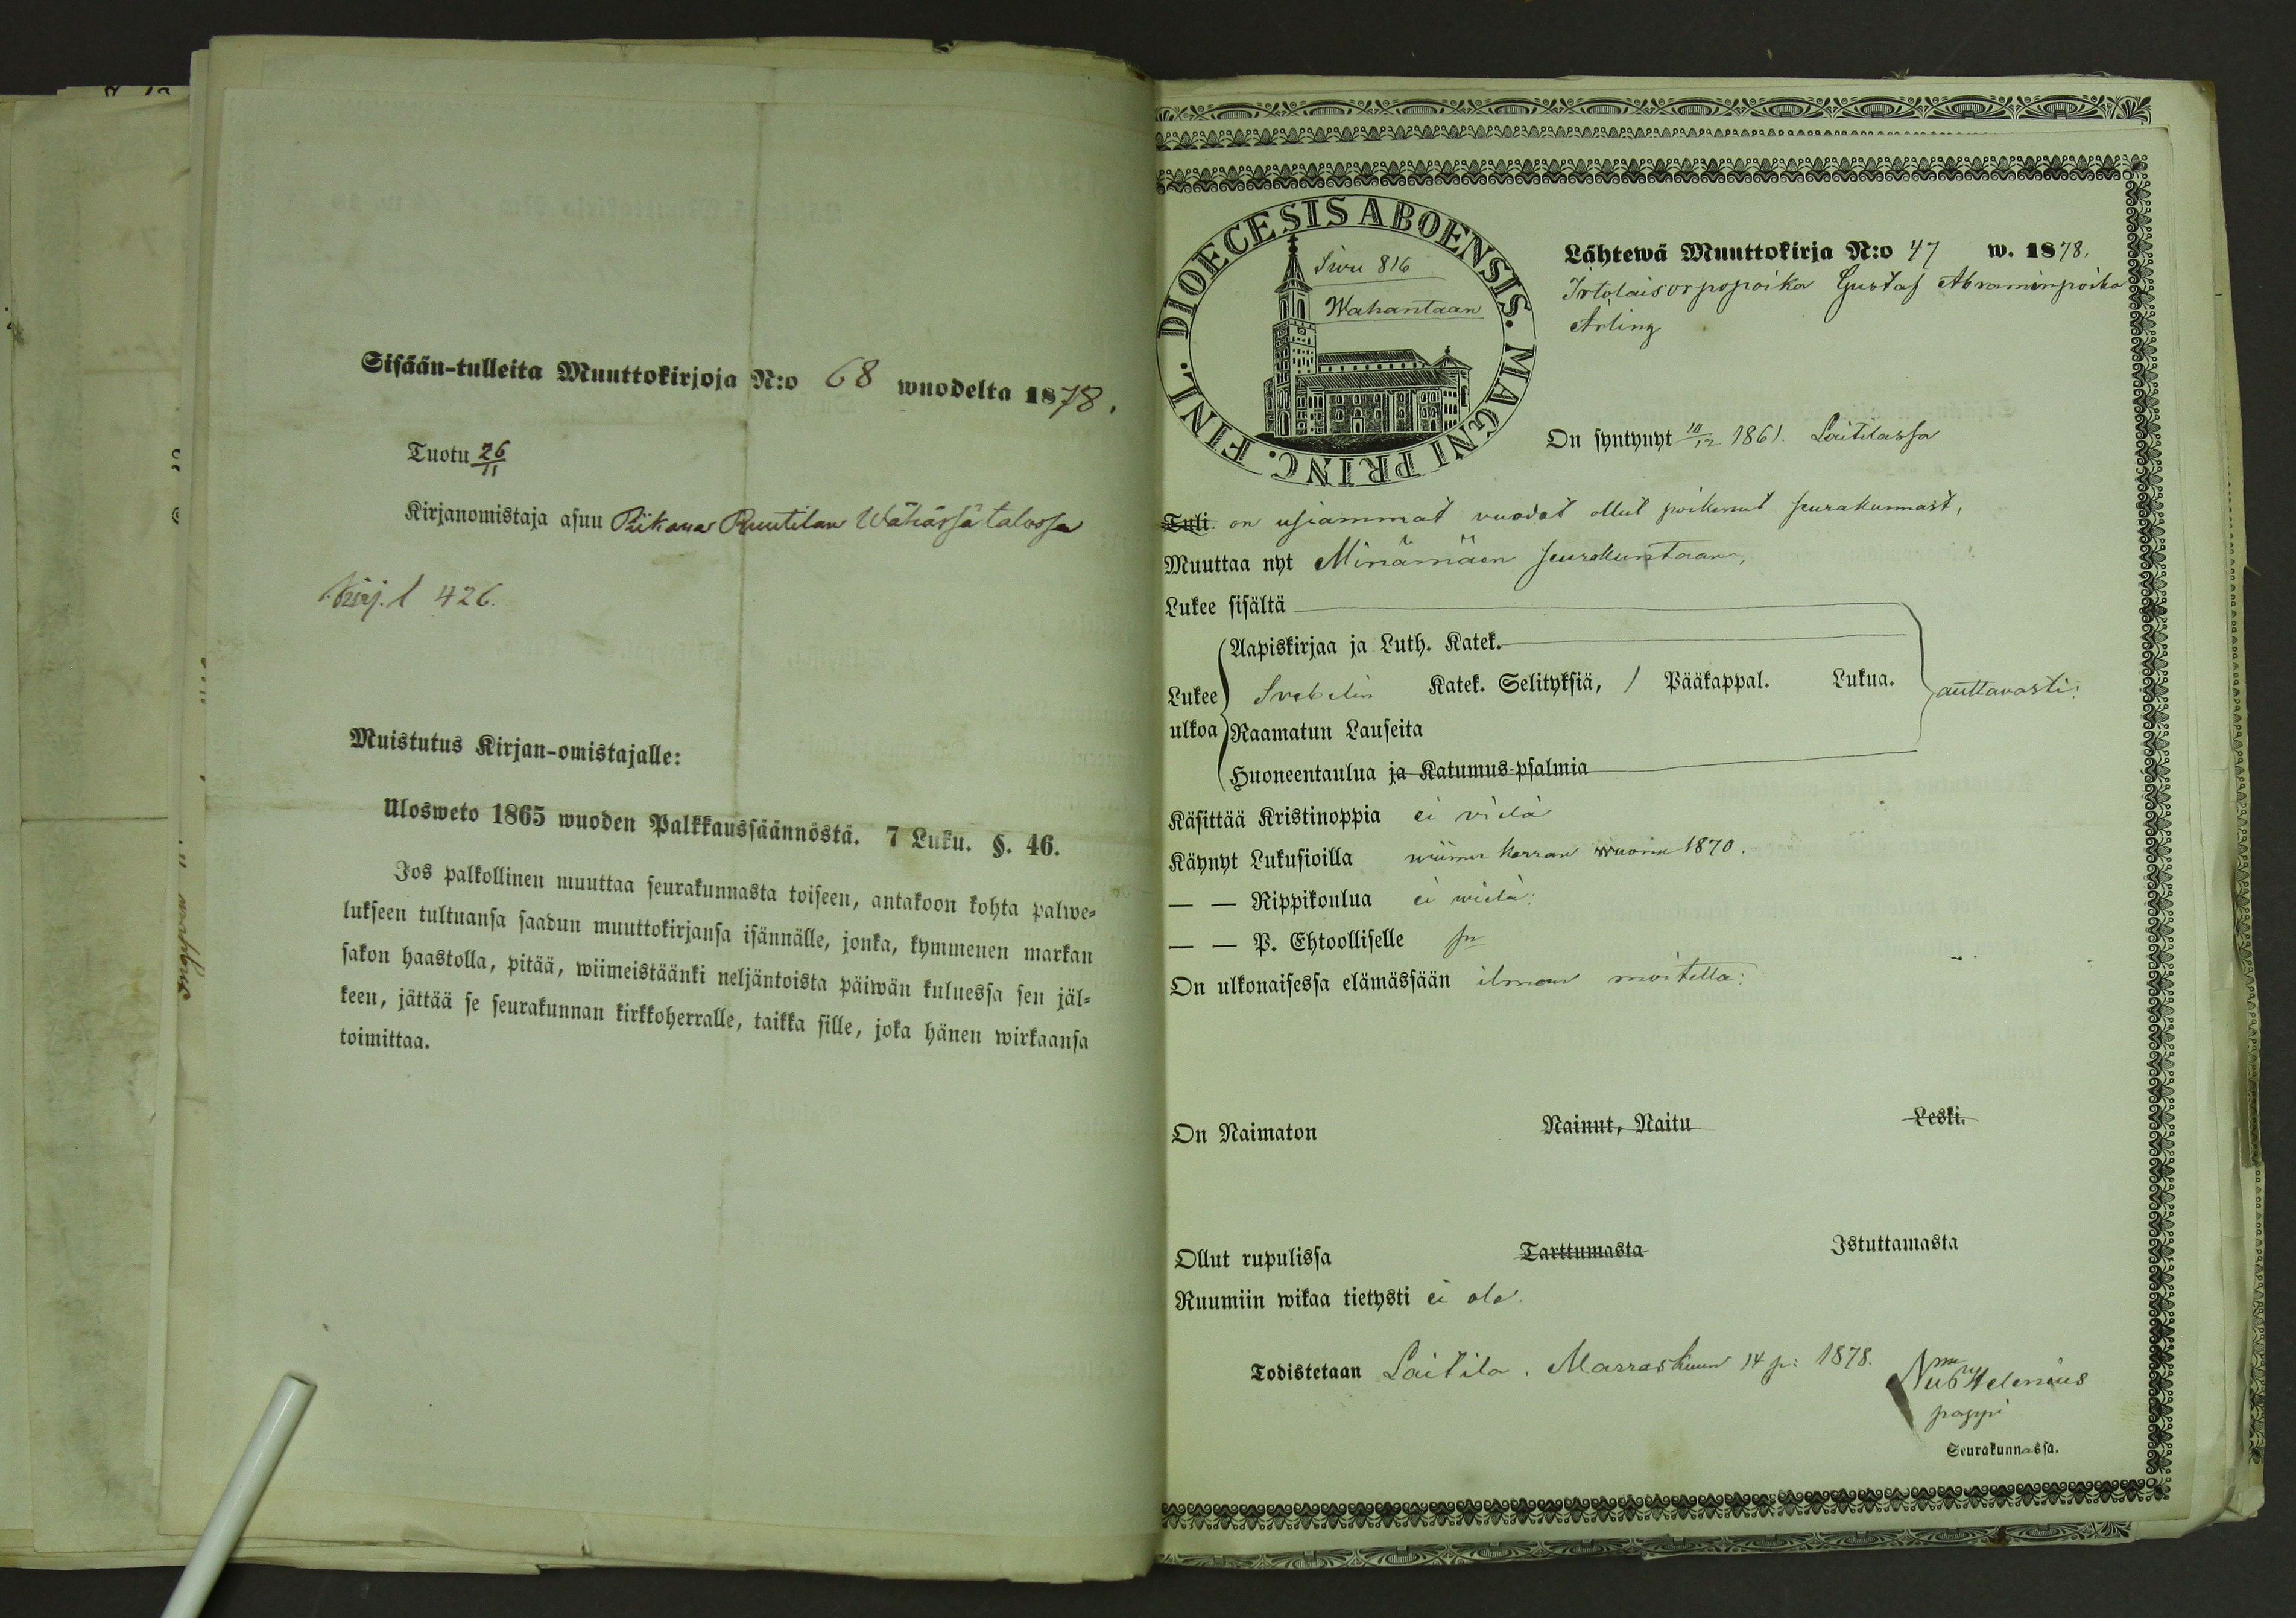 Sisään-tulleita Muuttokirjoja N:o 68 wuodelta 1878.
Tuotu 26/11
Kirjanomistaja asuu Piikana Ruutilan Wähässä talossa
Kirj. l 426.
Muistutus Kirjan-omistajalle:
Ulosweto 1865 wuoden Palkkaussäännöstä. 7 Luku. §. 46.
Jos palkollinen muuttaa seurakunnasta toiseen, antakoon kohta palwe-
lukseen tultuansa saadun muuttokirjansa isännälle, jonka, kymmenen markan
sakon haastolla, pitää, wiimeistäänki neljäntoista päiwän kuluessa sen jäl-
keen, jättää se seurakunnan kirkkoherralle, taikka sille, joka hänen wirkaansa
toimittaa.
DIOECESIS ABOENSIS. MAGNI PRINC. FINL.
Siwu 816
Wahantaan
Lähtewä Muuttokirja N:o 47 w. 1878.
Irtolaisorpopoika Gustaf Abraminpoika
Arling
On syntynyt 10/12 1861. Laitilassa
Tuli on usiammat vuodat ollut poikenut seurakunnast,
Muuttaa nyt Minämäen seurakuntaan,
Lukee sisältä
Aapiskirjaa ja Luth. Katek.
Lukee Svebelin Katek. Selityksiä, / Pääkappal. Lukua. auttavasti:
ulkoa Raamatun Lauseita
Huoneentaulua ja Katumus-psalmia
Käsittää Kristinoppia ei vielä
Käynyt Lukusioilla wiimer kerran wuonn 1870.
— — Rippikoulua ei wielä:
— — P. Ehtoolliselle
On ulkonaisessa elämässään ilman moitetta:
On Naimaton Nainut, Naitu Leski.
Ollut rupulissa Tarttumasta Istuttamasta
Ruumiin wikaa tietysti ei ole.
Todistetaan Laitila. Marraskuun 14 p: 1878.
Helenius
pappi
Seurakunnassa.